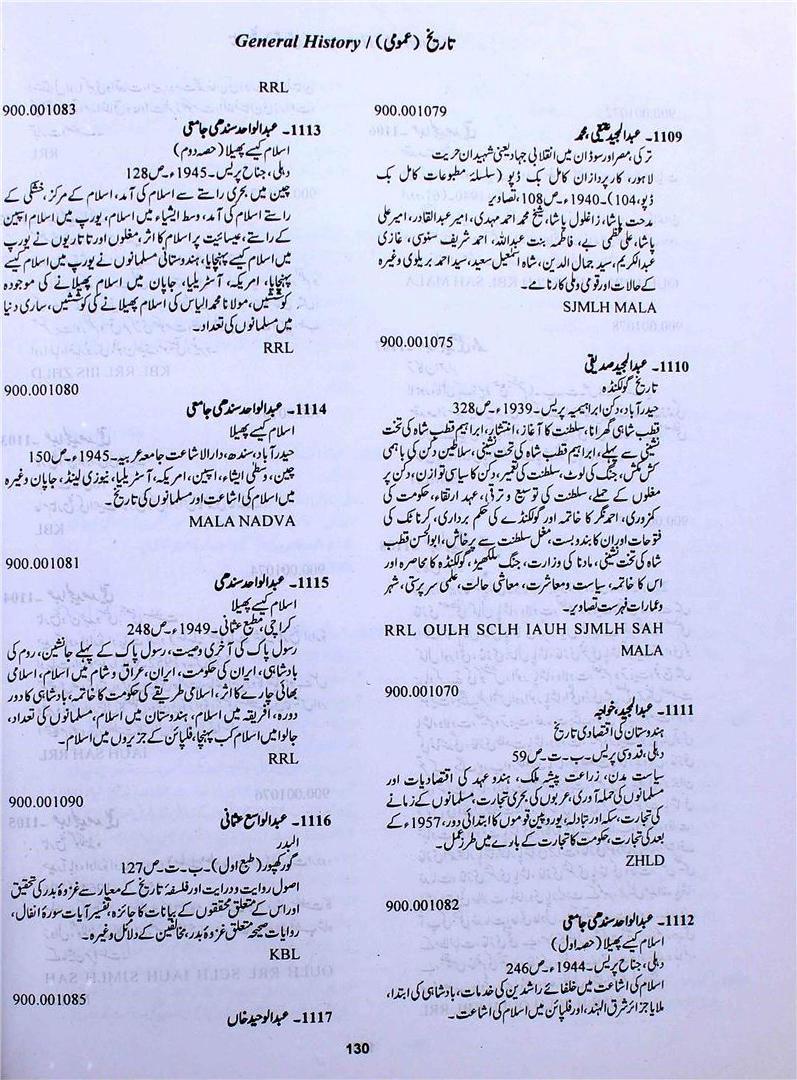 تاریخ (عمومی) / General History
900.001079
1109۔ عبدالمجید عتیقی، محمد
ترکی، مصر اور سوڈان میں انقلابی جہاد یعنی شہیدان حریت
لاہور، کارپردازان کامل بک ڈپو (سلسلۂ مطبوعات کامل بک
ڈپو، 104)۔ 1940ء۔ ص108، تصاویر
مدحت پاشا، زاغلول پاشا، شیخ محمد احمد مہدی، امیر عبدالقادر، امیر علی
پاشا، علی فہمی بے، فاطمہ بنت عبداللہ، احمد شریف سنوسی، غازی
عبدالکریم، سید جمال الدین، شاہ اسمٰعیل سعید، سید احمد بریلوی وغیرہ
کے حالات اور قومی و ملی کارنامے۔
SJMLH MALA
900.001075
1110۔ عبدالمجید صدیقی
تاریخ گولکنڈہ
حیدرآباد، دکن ابراہیمیہ پریس۔ 1939ء۔ ص328
قطب شاہی گھرانا، سلطنت کا آغاز، انتشار، ابراہیم قطب شاہ کی تخت
نشینی سے پہلے، ابراہیم قطب شاہ کی تخت نشینی، سلاطین دکن کی باہمی
کش مکش، جنگ کی لوٹ، سلطنت کی تعمیر، دکن کا سیاسی توازن، دکن پر
مغلوں کے حملے، سلطنت کی توسیع و ترقی، عہد ارتقاء، حکومت کی
کمزوری، احمد نگر کا خاتمہ اور گولکنڈے کی حکم برداری، کرناٹک کی
فتوحات اور ان کا بندوبست، مغل سلطنت سے پرخاش، ابوالحسن قطب
شاہ کی تخت نشینی، مادنا کی وزارت، جنگ ملکھیڑ، گولکنڈہ کا محاصرہ اور
اس کا خاتمہ، سیاست و معاشرت، معاشی حالت، علمی سرپرستی، شہر
و عمارات فہرست تصاویر۔
RRL OULH SCLH IAUH SJMLH SAH
MALA
900.001070
1111۔ عبدالمجید، خواجہ
ہندوستان کی اقتصادی تاریخ
دہلی، قدوسی پریس۔ ب۔ ت۔ ص59
سیاست مدن، زراعت پیشہ ملک، ہندو عہد کی اقتصادیات اور
مسلمانوں کی حملہ آوری، عربوں کی بحری تجارت، مسلمانوں کے زمانے
کی تجارت، سکہ اور تبادلہ، یوروپین قوموں کا ابتدائی دور، 1957ء کے
بعد کی تجارت، حکومت کا تجارت کے بارے میں طرز عمل۔
ZHLD
900.001082
1112۔ عبدالواحد سندھی جامعی
اسلام کیسے پھیلا (حصہ اول)
دہلی، جناح پریس۔ 1944ء۔ ص246
اسلام کی اشاعت میں خلفائے راشدین کی خدمات، بادشاہی کی ابتدا،
ملایا جزائر شرق الہند، اور فلپائن میں اسلام کی اشاعت۔
RRL
900.001083
1113۔ عبدالواحد سندھی جامعی
اسلام کیسے پھیلا (حصہ دوم)
دہلی، جناح پریس۔ 1945ء۔ ص128
چین میں بحری راستے سے اسلام کی آمد، اسلام کے مرکز، خشکی کے
راستے اسلام کی آمد، وسط ایشیاء میں اسلام، یورپ میں اسلام اسپین
کے راستے، عیسائیت پر اسلام کا اثر، مغلوں اور تاتاریوں نے یورپ
میں اسلام کیسے پہنچایا، ہندوستانی مسلمانوں نے یورپ میں اسلام کیسے
پہنچایا، امریکہ، آسٹریلیا، جاپان میں اسلام پھیلانے کی موجودہ
کوششیں، مولانا محمد الیاس کی اسلام پھیلانے کی کوششیں، ساری دنیا
میں مسلمانوں کی تعداد۔
RRL
900.001080
1114۔ عبدالواحد سندھی جامعی
اسلام کیسے پھیلا
حیدرآباد، سندھ، دارالاشاعت جامعہ عربیہ۔ 1945ء۔ ص150
چین، وسطی ایشاء، اسپین، امریکہ، آسٹریلیا، نیوزی لینڈ، جاپان وغیرہ
میں اسلام کی اشاعت اور مسلمانوں کی تاریخ۔
MALA NADVA
900.001081
1115۔ عبدالواحد سندھی
اسلام کیسے پھیلا
کراچی، مطبع عثمانی۔ 1949ء۔ ص248
رسول پاک کی آخری وصیت، رسول پاک کے پہلے جانشین، روم کی
بادشاہی، ایران کی حکومت، ایران، عراق و شام میں اسلام، اسلامی
بھائی چارے کا اثر، اسلامی طریقے کی حکومت کا خاتمہ، بادشاہی کا دور
دورہ، افریقہ میں اسلام، ہندوستان میں اسلام، مسلمانوں کی تعداد،
جاوا میں اسلام کب پہنچا، فلپائن کے جزیروں میں اسلام۔
RRL
900.001090
1116۔ عبدالواسع عثمانی
البدر
گورکھپور (طبع اول)۔ ب۔ ت۔ ص127
اصول روایت و درایت اور فلسفۂ تاریخ کے معیار سے غزوۂ بدر کی تحقیق
اور اس کے متعلق محققوں کے بیانات کا جائزہ، تفسیر آیات سورۂ انفال،
روایات صحیحہ متعلق غزوۂ بدر، مخالفین کے دلائل وغیرہ۔
KBL
900.001085
1117۔ عبدالوحید خاں
130